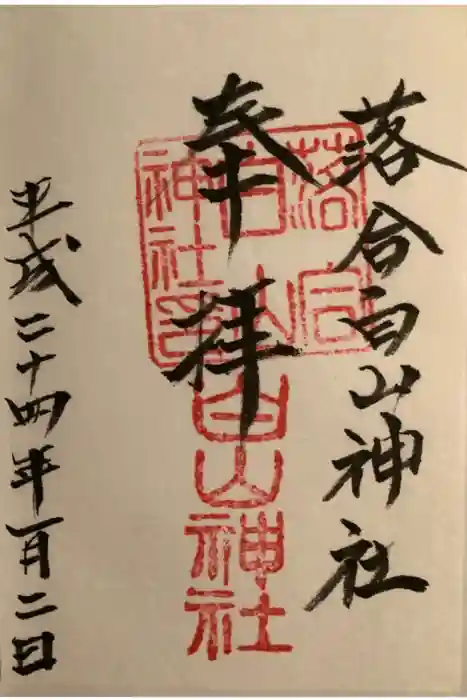 落合白山神社
奉拝
平成二十四年一月二日
落合
白山
神社印
白山神社